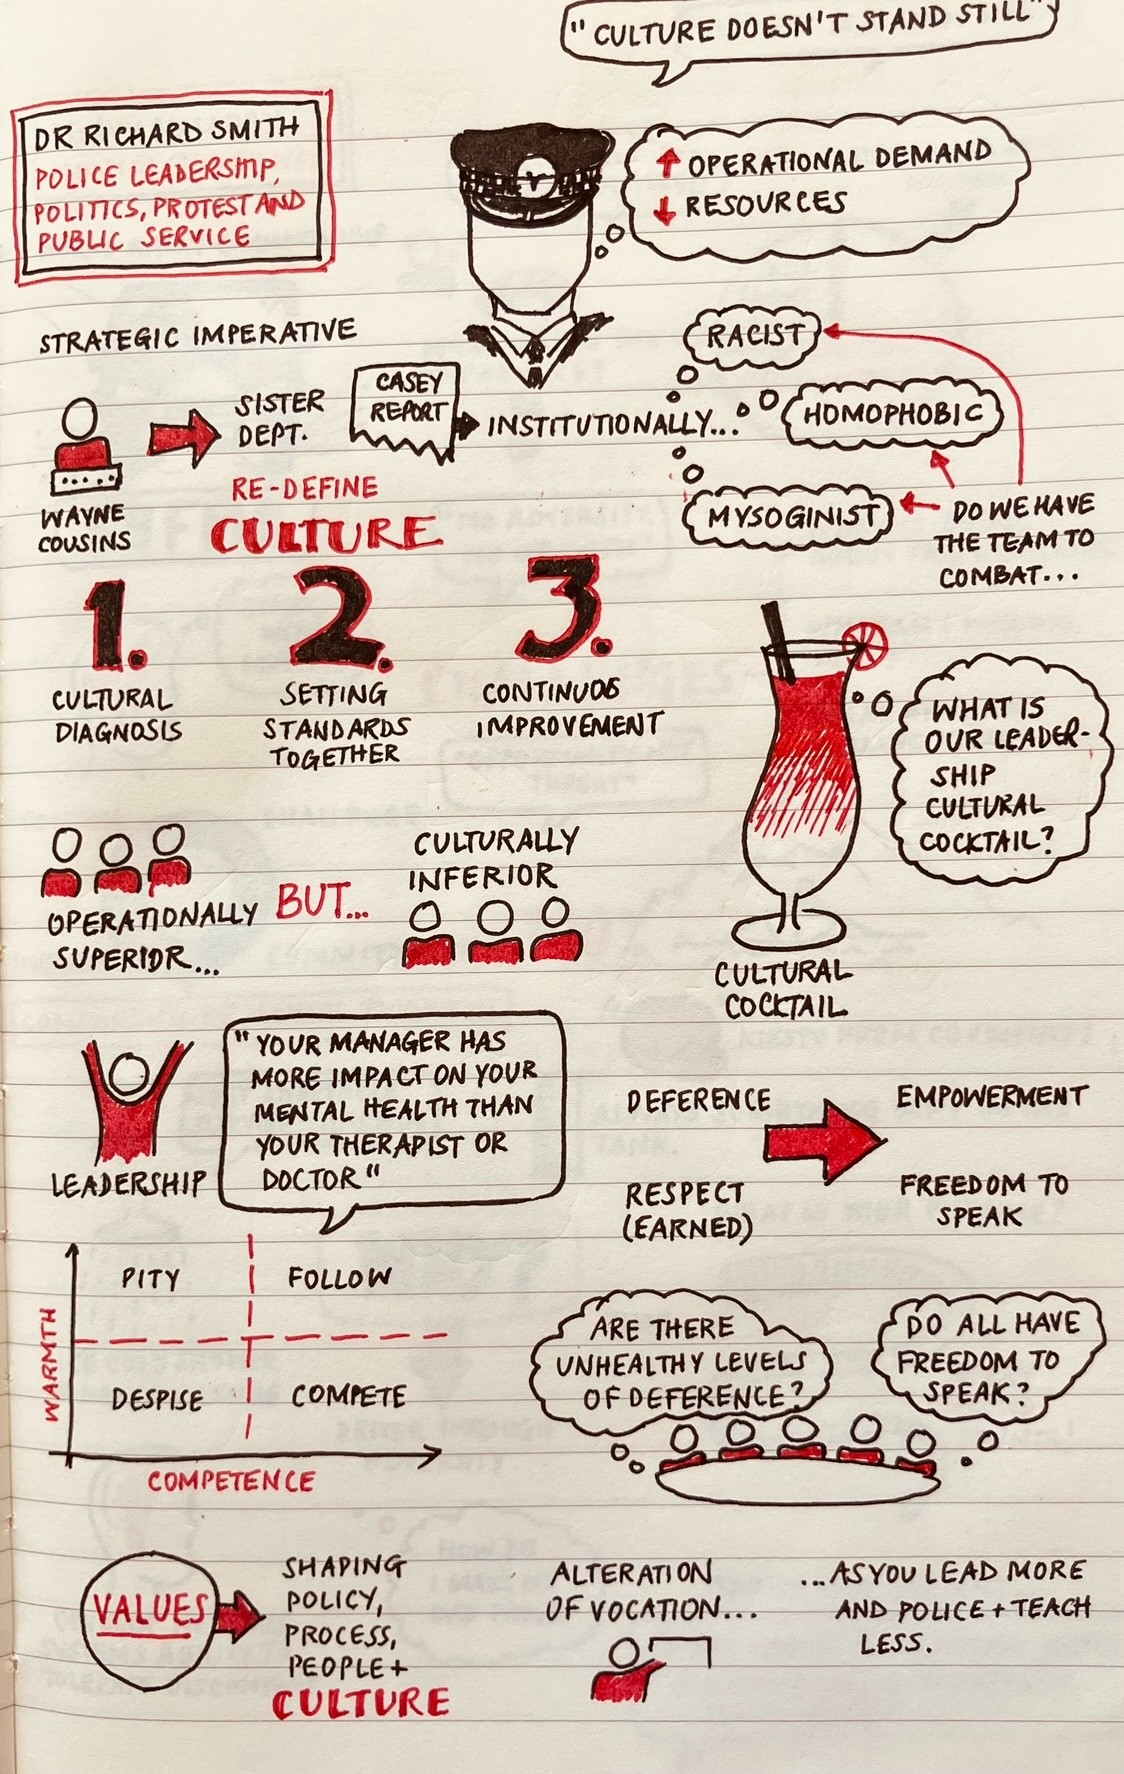 "CULTURE DOESN'T STAND STILL"
DR RICHARD SMITH
POLICE LEADERSHIP,
POLITICS, PROTEST AND
PUBLIC SERVICE
↑ OPERATIONAL DEMAND
↓ RESOURCES
STRATEGIC IMPERATIVE
WAYNE
COUSINS
SISTER
DEPT.
CASEY
REPORT
INSTITUTIONALLY...
RACIST
HOMOPHOBIC
MYSOGINIST
DO WE HAVE
THE TEAM TO
COMBAT...
RE-DEFINE
CULTURE
1.
CULTURAL
DIAGNOSIS
2.
SETTING
STANDARDS
TOGETHER
3.
CONTINUOS
IMPROVEMENT
WHAT IS
OUR LEADER-
SHIP
CULTURAL
COCKTAIL?
CULTURAL
COCKTAIL
OPERATIONALLY
SUPERIOR...
BUT...
CULTURALLY
INFERIOR
LEADERSHIP
"YOUR MANAGER HAS
MORE IMPACT ON YOUR
MENTAL HEALTH THAN
YOUR THERAPIST OR
DOCTOR"
DEFERENCE
RESPECT
(EARNED)
EMPOWERMENT
FREEDOM TO
SPEAK
WARMTH
PITY
FOLLOW
DESPISE
COMPETE
COMPETENCE
ARE THERE
UNHEALTHY LEVELS
OF DEFERENCE?
DO ALL HAVE
FREEDOM TO
SPEAK?
VALUES
SHAPING
POLICY,
PROCESS,
PEOPLE +
CULTURE
ALTERATION
OF VOCATION...
...AS YOU LEAD MORE
AND POLICE + TEACH
LESS.